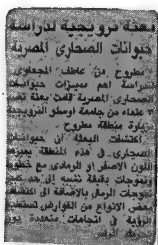 بعثة نرويجية لدراسة
حيوانات الصحارى المصرية
مطروح من عاطف المجعاوى
لدراسة أهم مميزات حيوانات
الصحارى المصرية قامت بعثة تضم
علماء من جامعة أوسلو النرويجية
بزيارة منطقة مطروح
اكتشفت البعثة أن حيوانات
الصحارى فى هذه المنطقة
اللون الأصفر أو الرمادى مع خطوط
وتموجات دقيقة تشبه إلى حد
الرمال بالإضافة إلى اكتشاف
بعض الأنواع من القوارض تستطيع
الرؤية فى اتجاهات متعددة